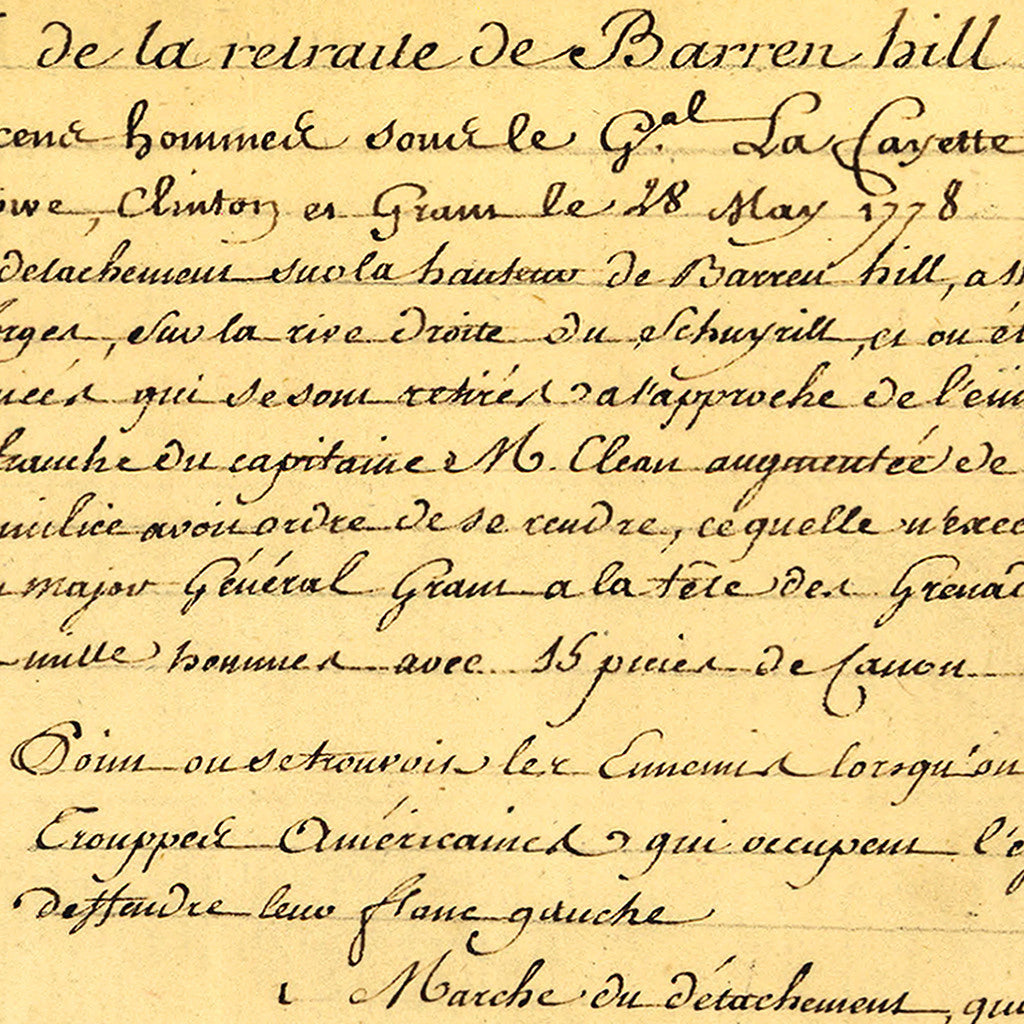 de la retraite de Barren hill
cens hommes sous le G.al La Fayette
owe, Clinton et Grant le 28 May 1778
detachement sur la hauteur de Barren hill, a
orges, sur la rive droite du Schuyrill, et ou
qui se sont retirés a l'approche de
franche du capitaine M. Clean augmentée de
milice avoit ordre de se rendre, ce quelle
major Général Grant a la tête des Grenad
mille hommes avec 15 pieces de Canon
Point ou se trouvoit les Ennemis lorsqu'on
Trouppes Américaines qui occupent
deffendre leur flanc gauche
Marche du détachement, qui